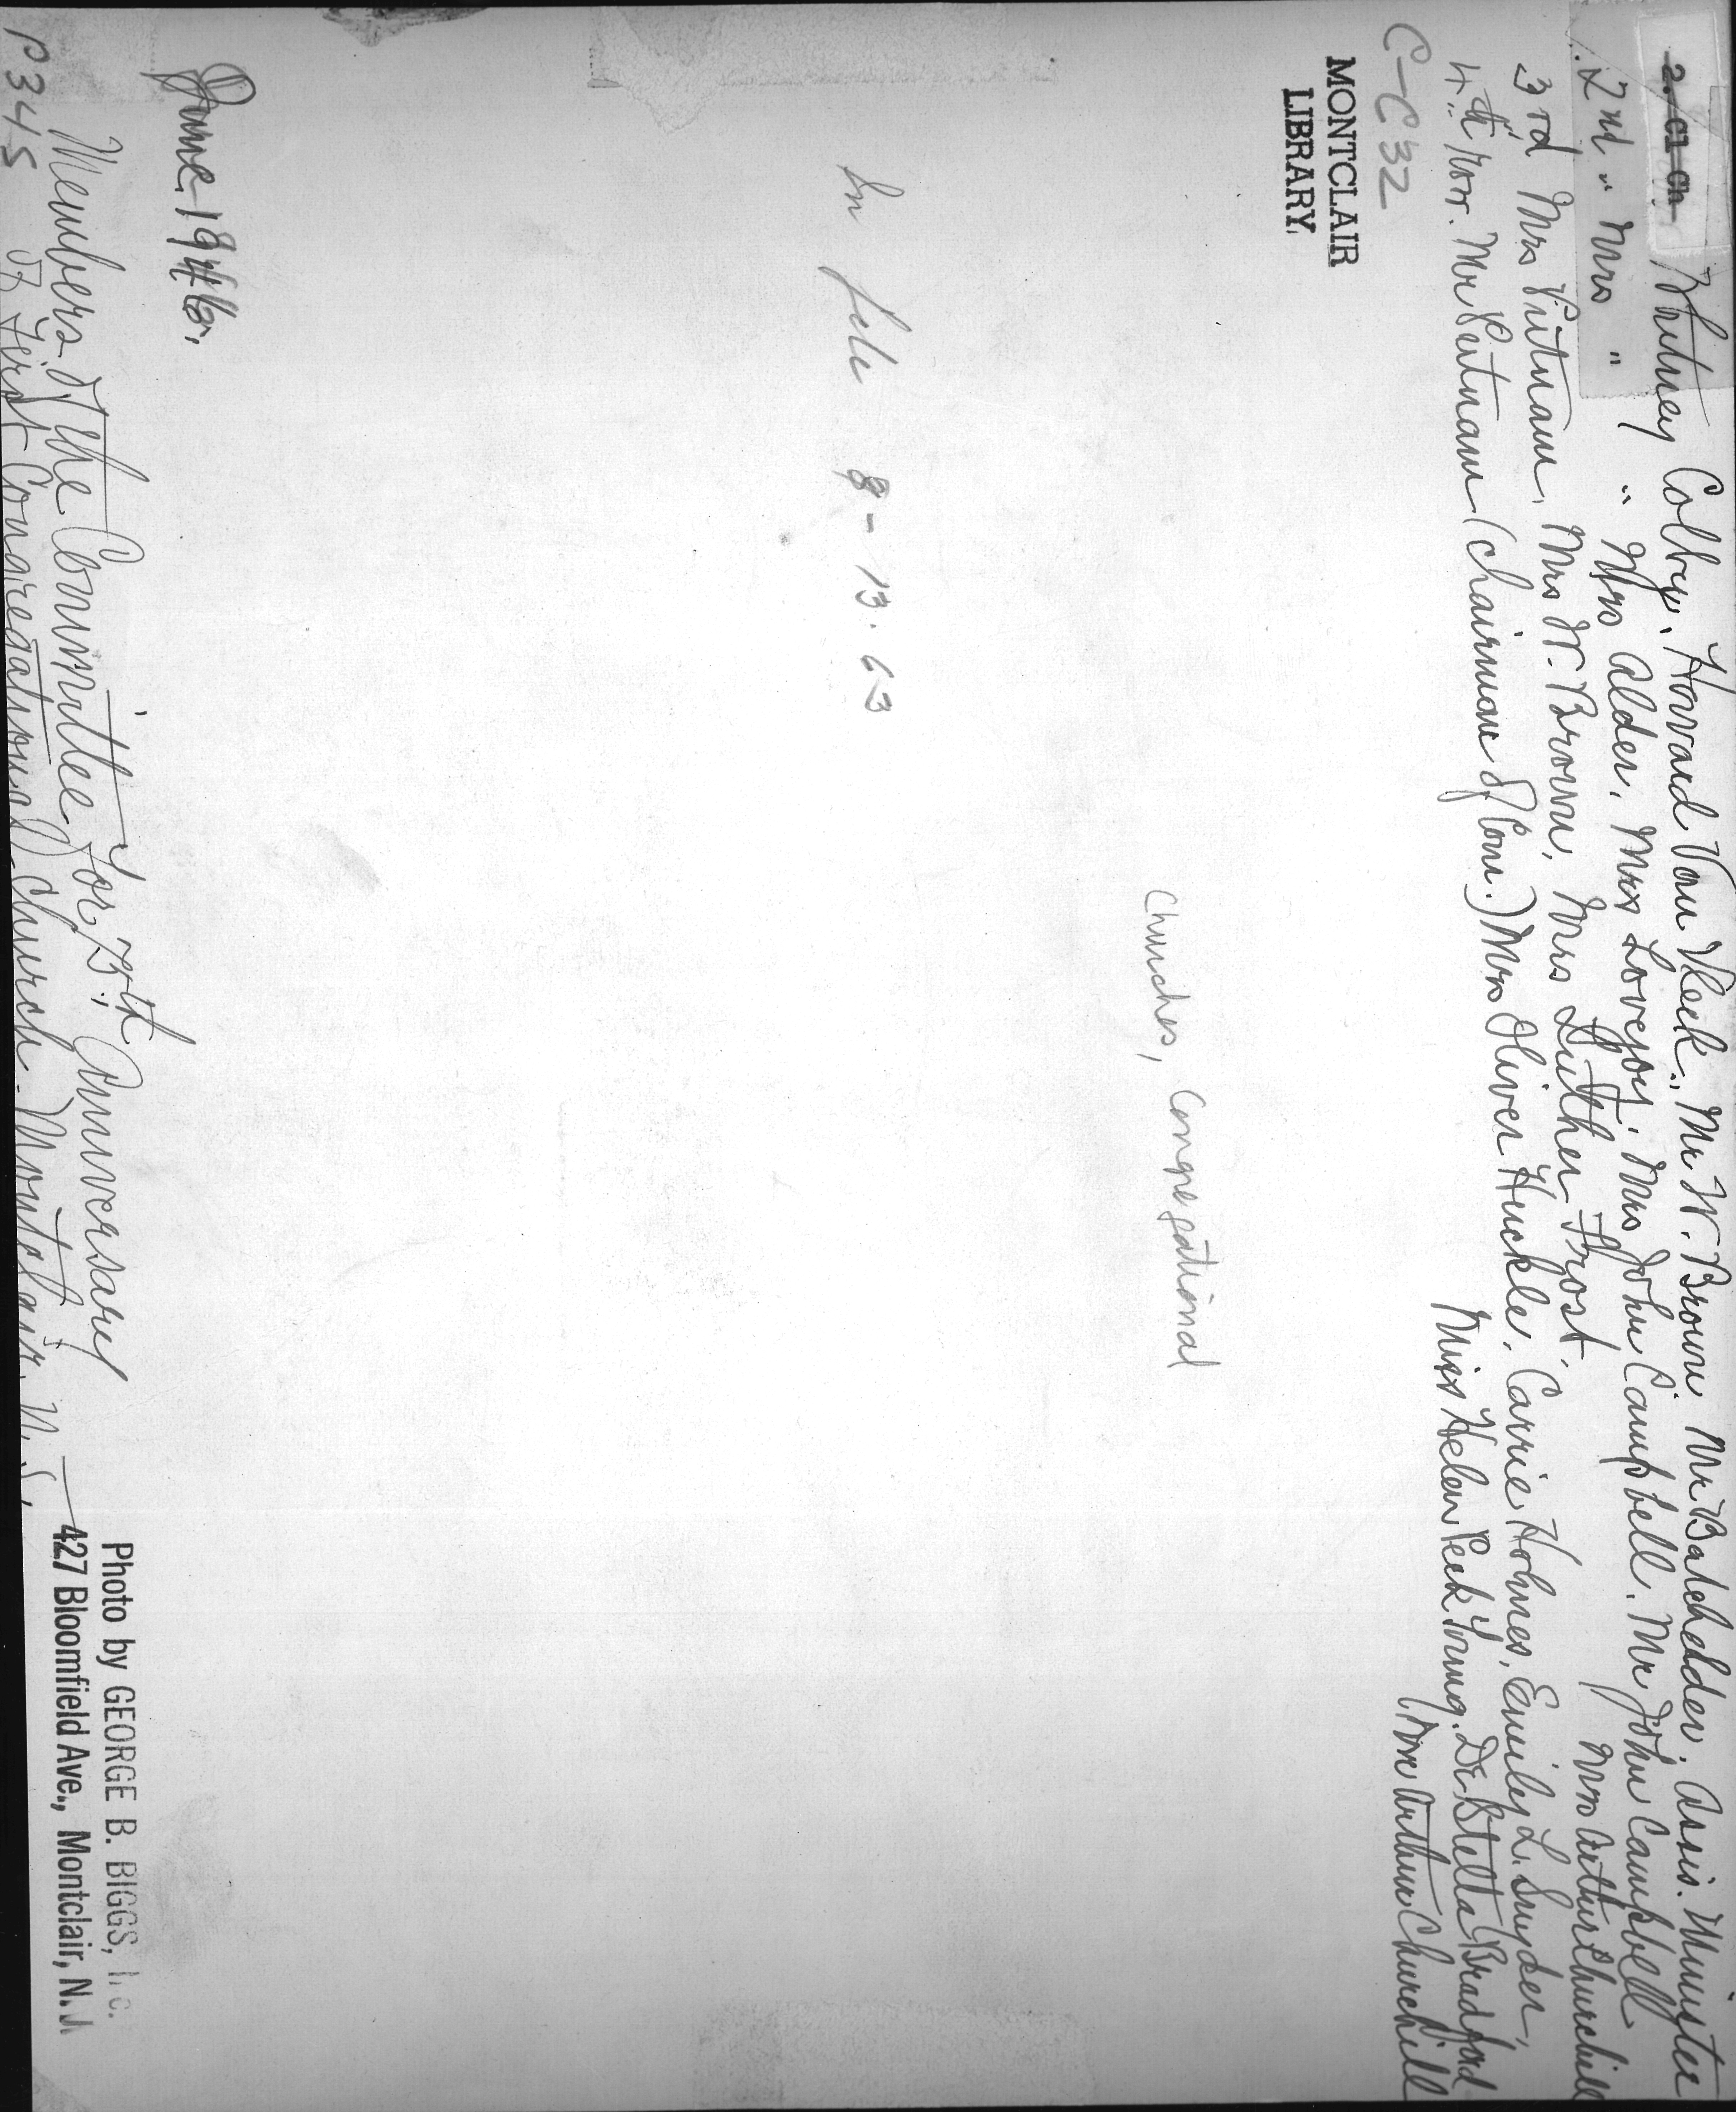 2./C1-Ch
Whitney Colby, Howard Van Vleck, Mr W. Brown Mr Batchelder. Assis. Minister
2nd " Mrs " " Mrs Alder. Mrs Lovejoy. Mrs John Campbell. Mr John Campbell
Mrs Arthur Churchill
3rd Mrs Putnam, Mrs W. Brown, Mrs Luther Frost.
4th row. Mr Putnam (Chairman of Com.) Mrs Oliver Huckle. Carrie Holmes, Emily L. Snyder,
Miss Helen Peck Young. Dr Stella Bradford
Arthur Churchill
C-C32
MONTCLAIR
LIBRARY.
Churches, Congregational
In file 8-13.63
June 1946.
Members of the Committee for 75th Anniversary
of First Congregational Church-Montclair. N.J.
P345
Photo by GEORGE B. BIGGS, Inc.
427 Bloomfield Ave., Montclair, N.J.